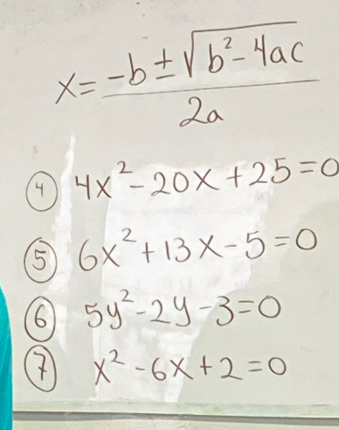 x = -b ± √(b² - 4ac) / 2a
④ 4x² - 20x + 25 = 0
⑤ 6x² + 13x - 5 = 0
⑥ 5y² - 2y - 3 = 0
⑦ x² - 6x + 2 = 0